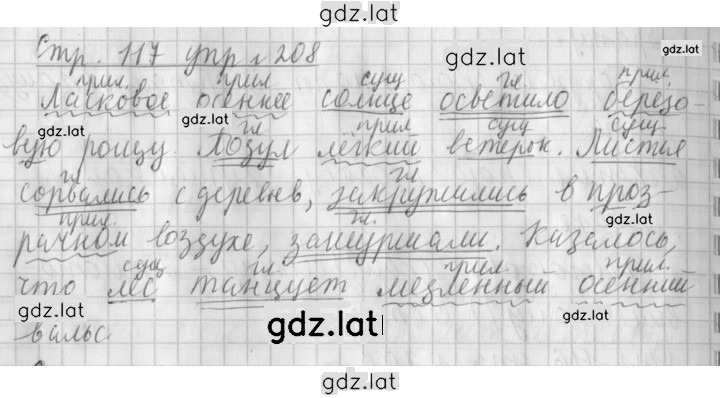 gdz.lat
Стр. 117 упр № 208
gdz.lat
gdz.lat
прил. прил сущ гл. прил.
Ласковое осеннее солнце осветило берёзо-
gdz.lat
gdz.lat
гл прил сущ сущ.
вую рощу. Подул лёгкий ветерок. Листья
гл. гл.
сорвались с деревьев, закружились в проз-
gdz.lat
прил. гл.
рачном воздухе, зашуршали. Казалось,
сущ гл. прил. прил.
что лес танцует медленный осенний
gdz.lat
gdz.lat
gdz.lat
вальс.
gdz.lat